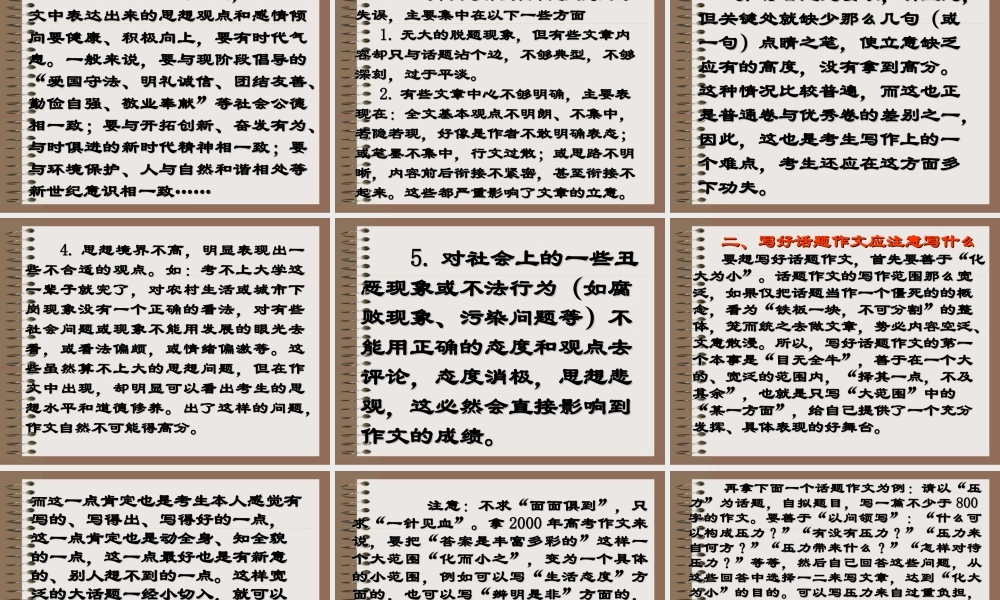 文中表达出来的思想观点和感情倾
向要健康、积极向上，要有时代气
息。一般来说，要与现阶段倡导的
“爱国守法、明礼诚信、团结友善、
勤俭自强、敬业奉献”等社会公德
相一致；要与开拓创新、奋发有为、
与时俱进的新时代精神相一致；要
与环境保护、人与自然和谐相处等
新世纪意识相一致……
失误，主要集中在以下一些方面
1. 无大的脱题现象，但有些文章内
容却只与话题沾个边，不够典型，不够
深刻，过于平淡。
2. 有些文章中心不够明确，主要表
现在：全文基本观点不明朗、不集中，
若隐若现，好像是作者不敢明确表态；
或笔墨不集中，行文过散；或思路不明
晰，内容前后衔接不紧密，甚至衔接不
起来。这些都严重影响了文章的立意。
但关键处就缺少那么几句（或
一句）点睛之笔，使立意缺乏
应有的高度，没有拿到高分。
这种情况比较普遍，而这也正
是普通卷与优秀卷的差别之一，
因此，这也是考生写作上的一
个难点，考生还应在这方面多
下功夫。
4. 思想境界不高，明显表现出一
些不合适的观点。如：考不上大学这
一辈子就完了，对农村生活或城市下
岗现象没有一个正确的看法，对有些
社会问题或现象不能用发展的眼光去
看，或看法偏颇，或情绪偏激等。这
些虽然算不上大的思想问题，但在作
文中出现，却明显可以看出考生的思
想水平和道德修养。出了这样的问题，
作文自然不可能得高分。
5. 对社会上的一些丑
恶现象或不法行为（如腐
败现象、污染问题等）不
能用正确的态度和观点去
评论，态度消极，思想悲
观，这必然会直接影响到
作文的成绩。
二、写好话题作文应注意写什么
要想写好话题作文，首先要善于“化
大为小”。话题作文的写作范围那么宽
泛，如果仅把话题当作一个僵死的的概
念，看为“铁板一块，不可分割”的整
体，笼而统之去做文章，势必内容空泛、
文意散漫。所以，写好话题作文的第一
个本事是“目无全牛”，善于在一个大
的、宽泛的范围内，“择其一点，不及
其余”，也就是只写“大范围”中的
“某一方面”，给自己提供了一个充分
发挥、具体表现的好舞台。
而这一点肯定也是考生本人感觉有
写的、写得出、写得好的一点，
这一点肯定也是动全身、知全貌
的一点，这一点最好也是有新意
的、别人想不到的一点。这样宽
泛的大话题一经小切入，就可以
注意：不求“面面俱到”，只
求“一针见血”。拿2000年高考作文来
说，要把“答案是丰富多彩的”这样一
个大范围“化而小之”，变为一个具体
的小范围，例如可以写“生活态度”方
面的，也可以写“辨明是非”方面的，
再拿下面一个话题作文为例：请以“压
力”为话题，自拟题目，写一篇不少于800
字的作文。要善于“以问领写”：“什么可
以构成压力？”“有没有压力？”“压力来
自何方？”“压力带来什么？”“怎样对待
压力？”等等，然后自己回答这些问题，从
这些回答中选择一二来写文章，达到“化大
为小”的目的。可以写压力来自过重负担，